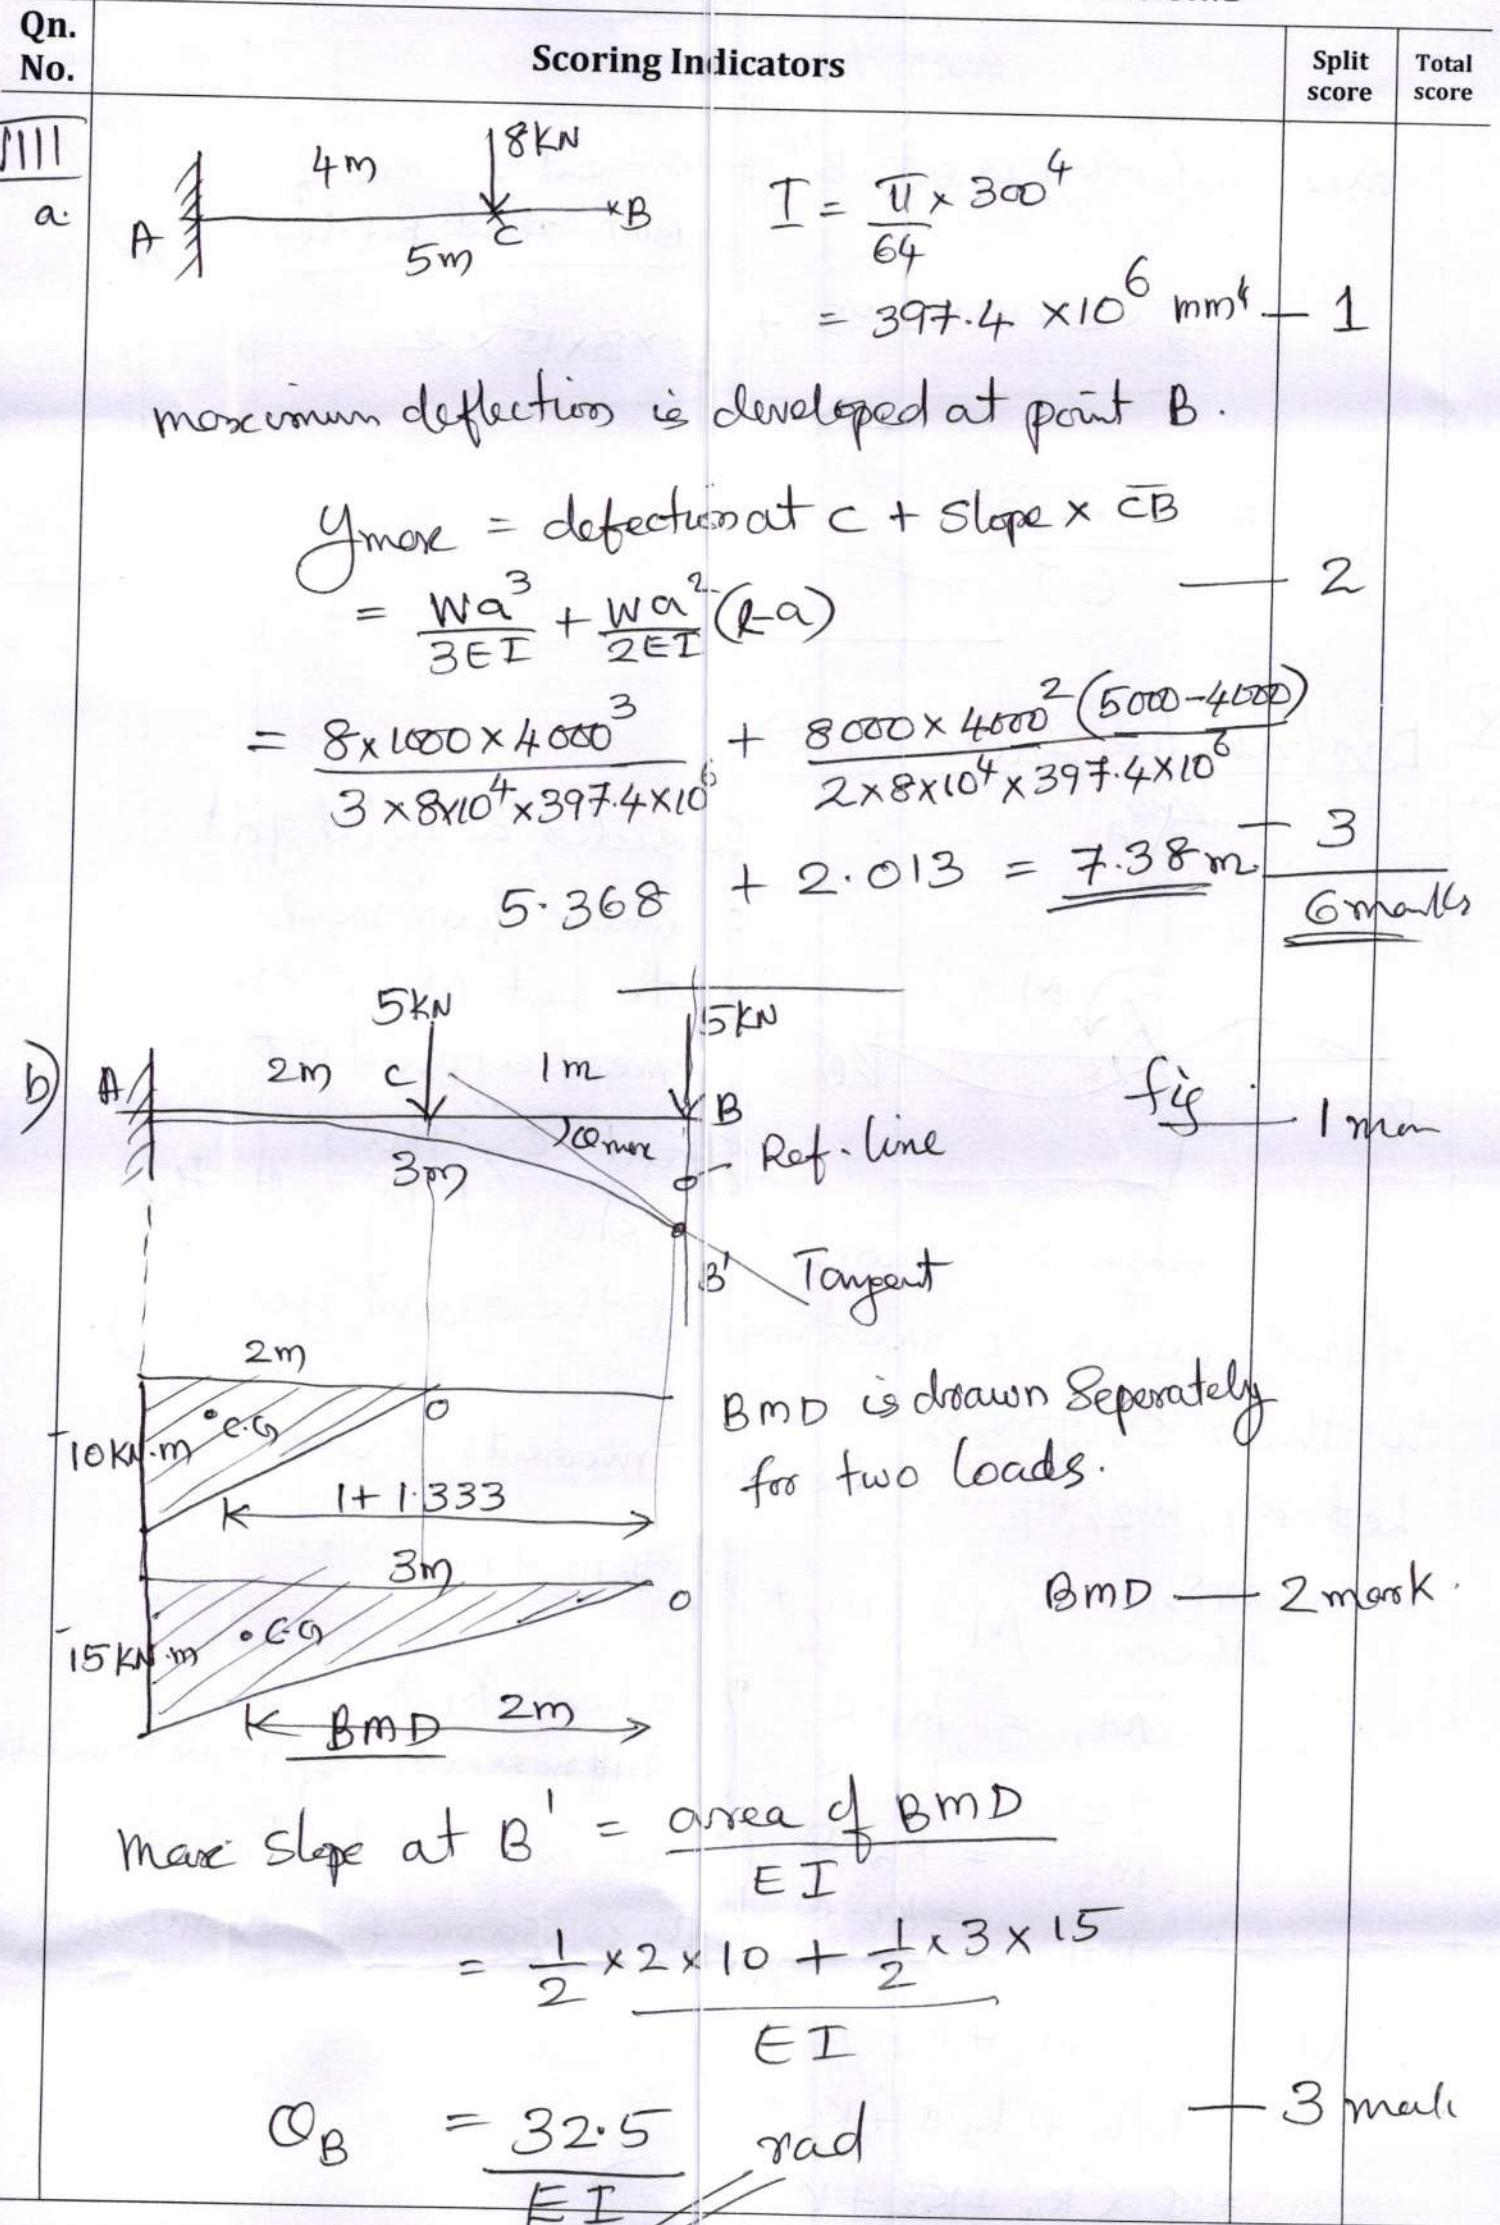 Qn. No.
Scoring Indicators
Split score
Total score
VIII
a.
4m
8KN
A
C
B
5m
I = π/64 × 300⁴
= 397.4 × 10⁶ mm⁴ — 1
maximum deflection is developed at point B.
ymax = defection at C + Slope × C̅B̅
— 2
= Wa³/3EI + Wa²/2EI (l-a)
= 8×1000×4000³/3×8×10⁴×397.4×10⁶ + 8000×4000²(5000-4000)/2×8×10⁴×397.4×10⁶
— 3
5.368 + 2.013 = 7.38 m
6 marks
b)
5KN
5KN
A
2m
C
1m
B
θmax
3m
Ref. line
fig — 1 mar
B'
Tangent
2m
C.G
O
-10 KN.m
1+1.333
BMD is drawn Seperately
for two loads.
3m
O
C.G
-15 KN.m
BMD — 2 mark.
2m
BMD
Max Slope at B' = area of BMD/EI
= ½ × 2 × 10 + ½ × 3 × 15
EI
— 3 mark
θB = 32.5/EI rad